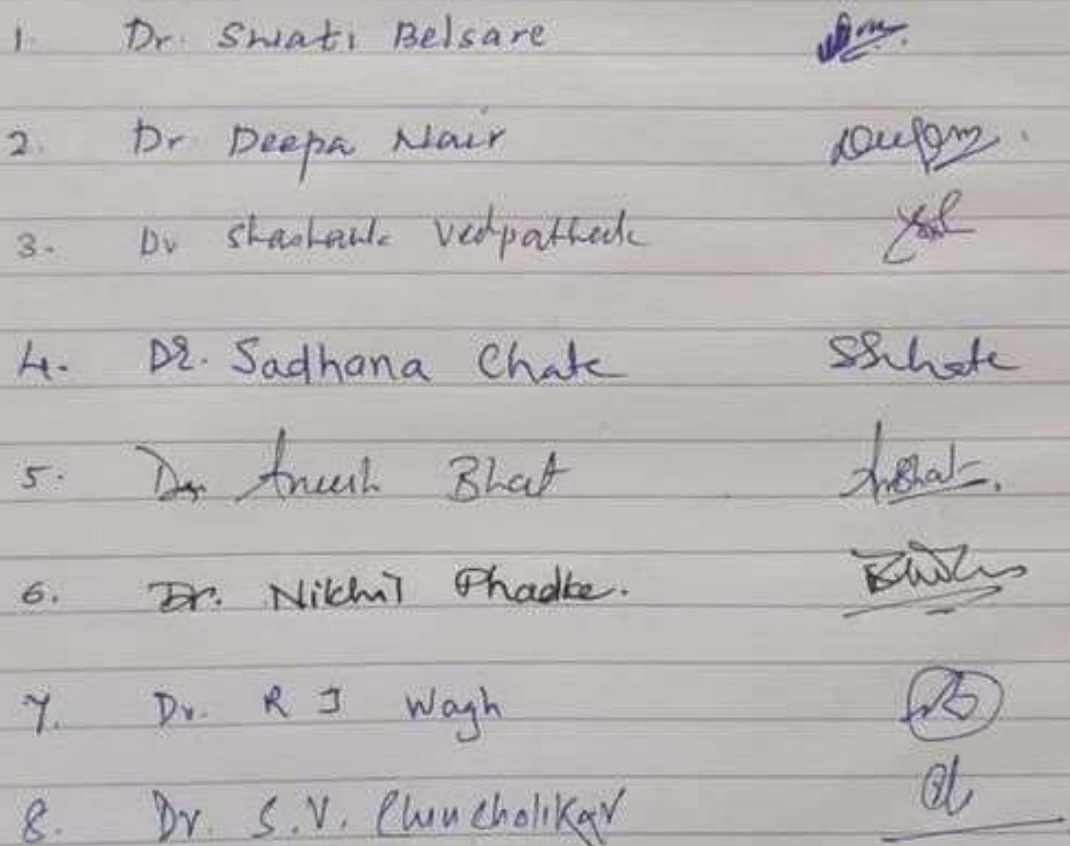 1. Dr. Swati Belsare
2. Dr Deepa Nair
3. Dr Shashank Vedpathak
4. Dr. Sadhana Chate SSChate
5. Dr Aneesh Bhat ArBhat.
6. Dr. Nikhil Phadke.
7. Dr. R J Wagh
8. Dr. S.V. Chincholikar